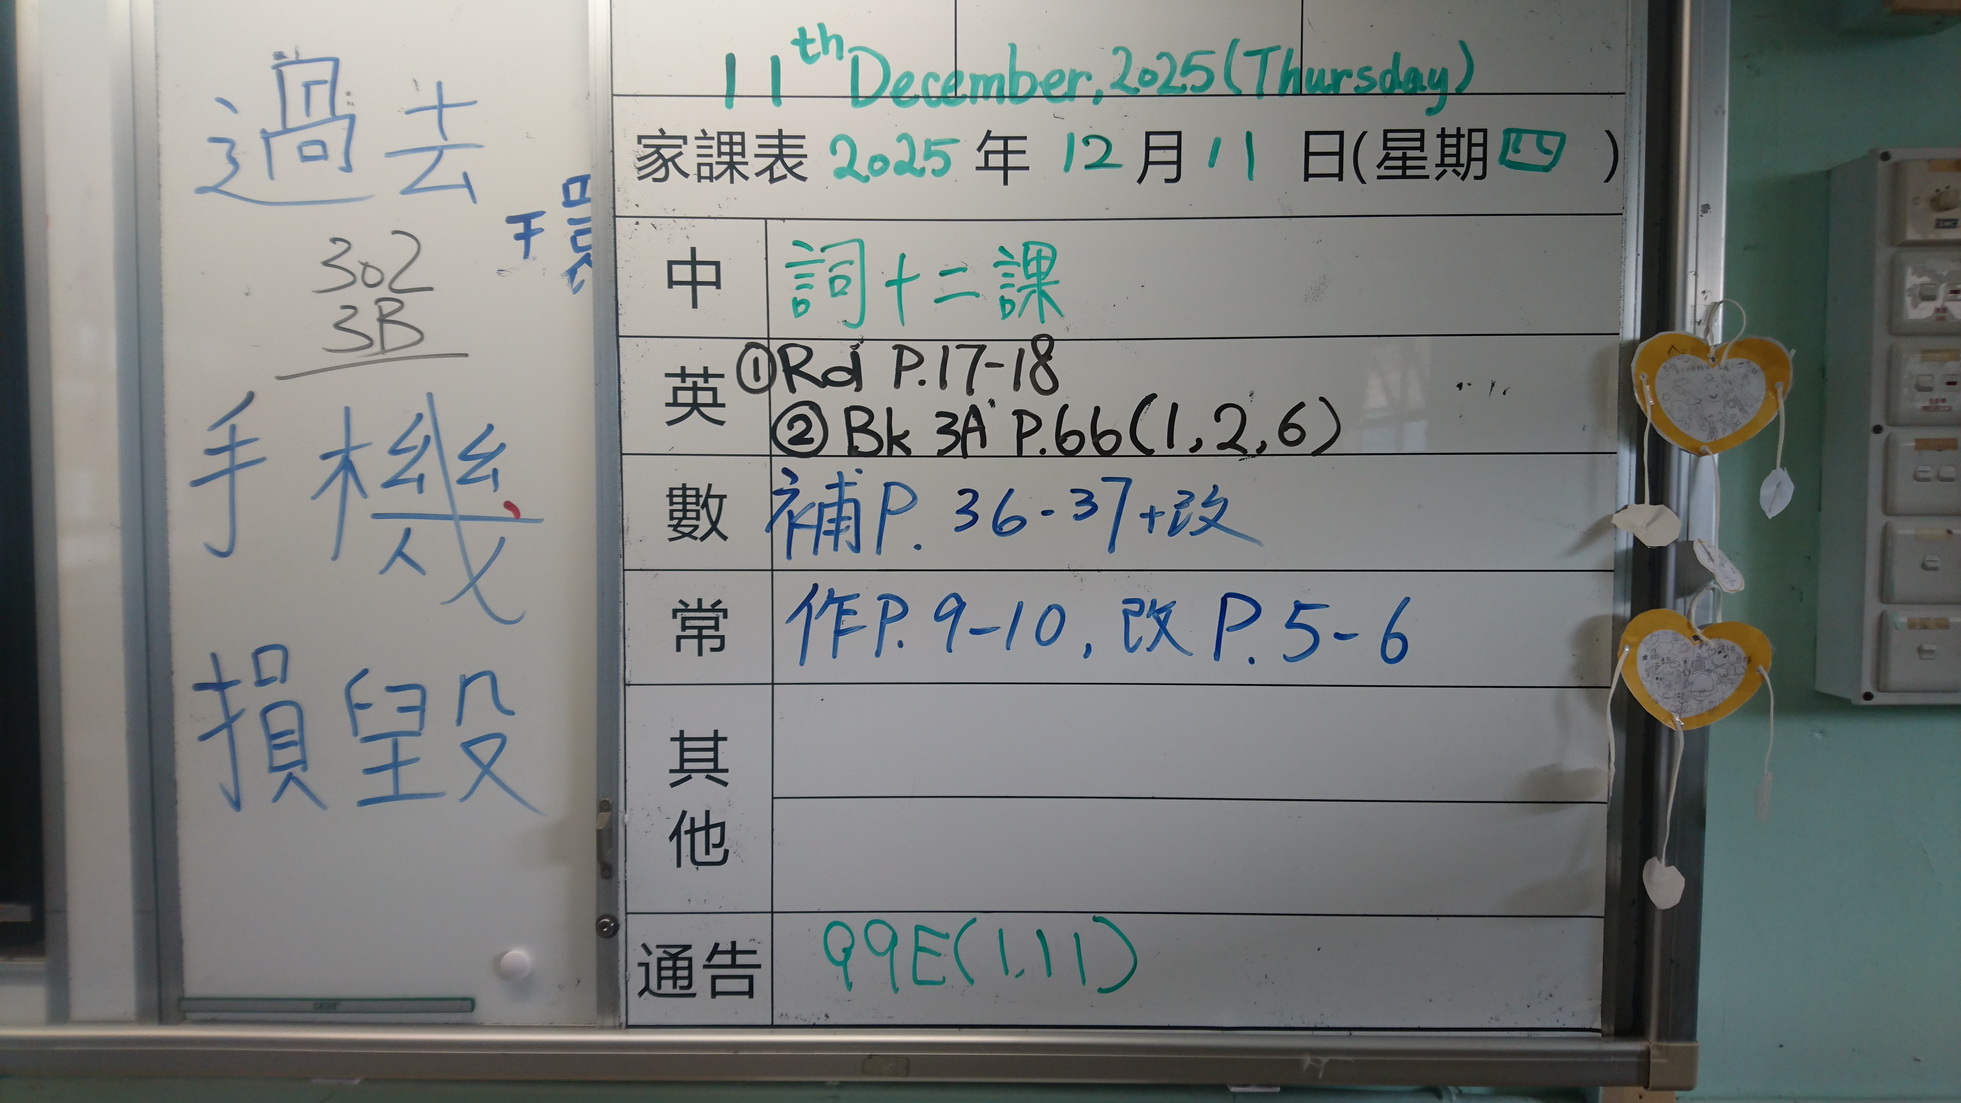 過去
環
302
3B
手機
損毀
11th December, 2025 (Thursday)
家課表 2025 年 12 月 11 日(星期四)
中 詞十二課
英 ①Rd P.17-18
②Bk 3A P.66(1,2,6)
數 補P. 36-37+改
常 作P.9-10, 改P.5-6
其他
通告 99E(1.11)